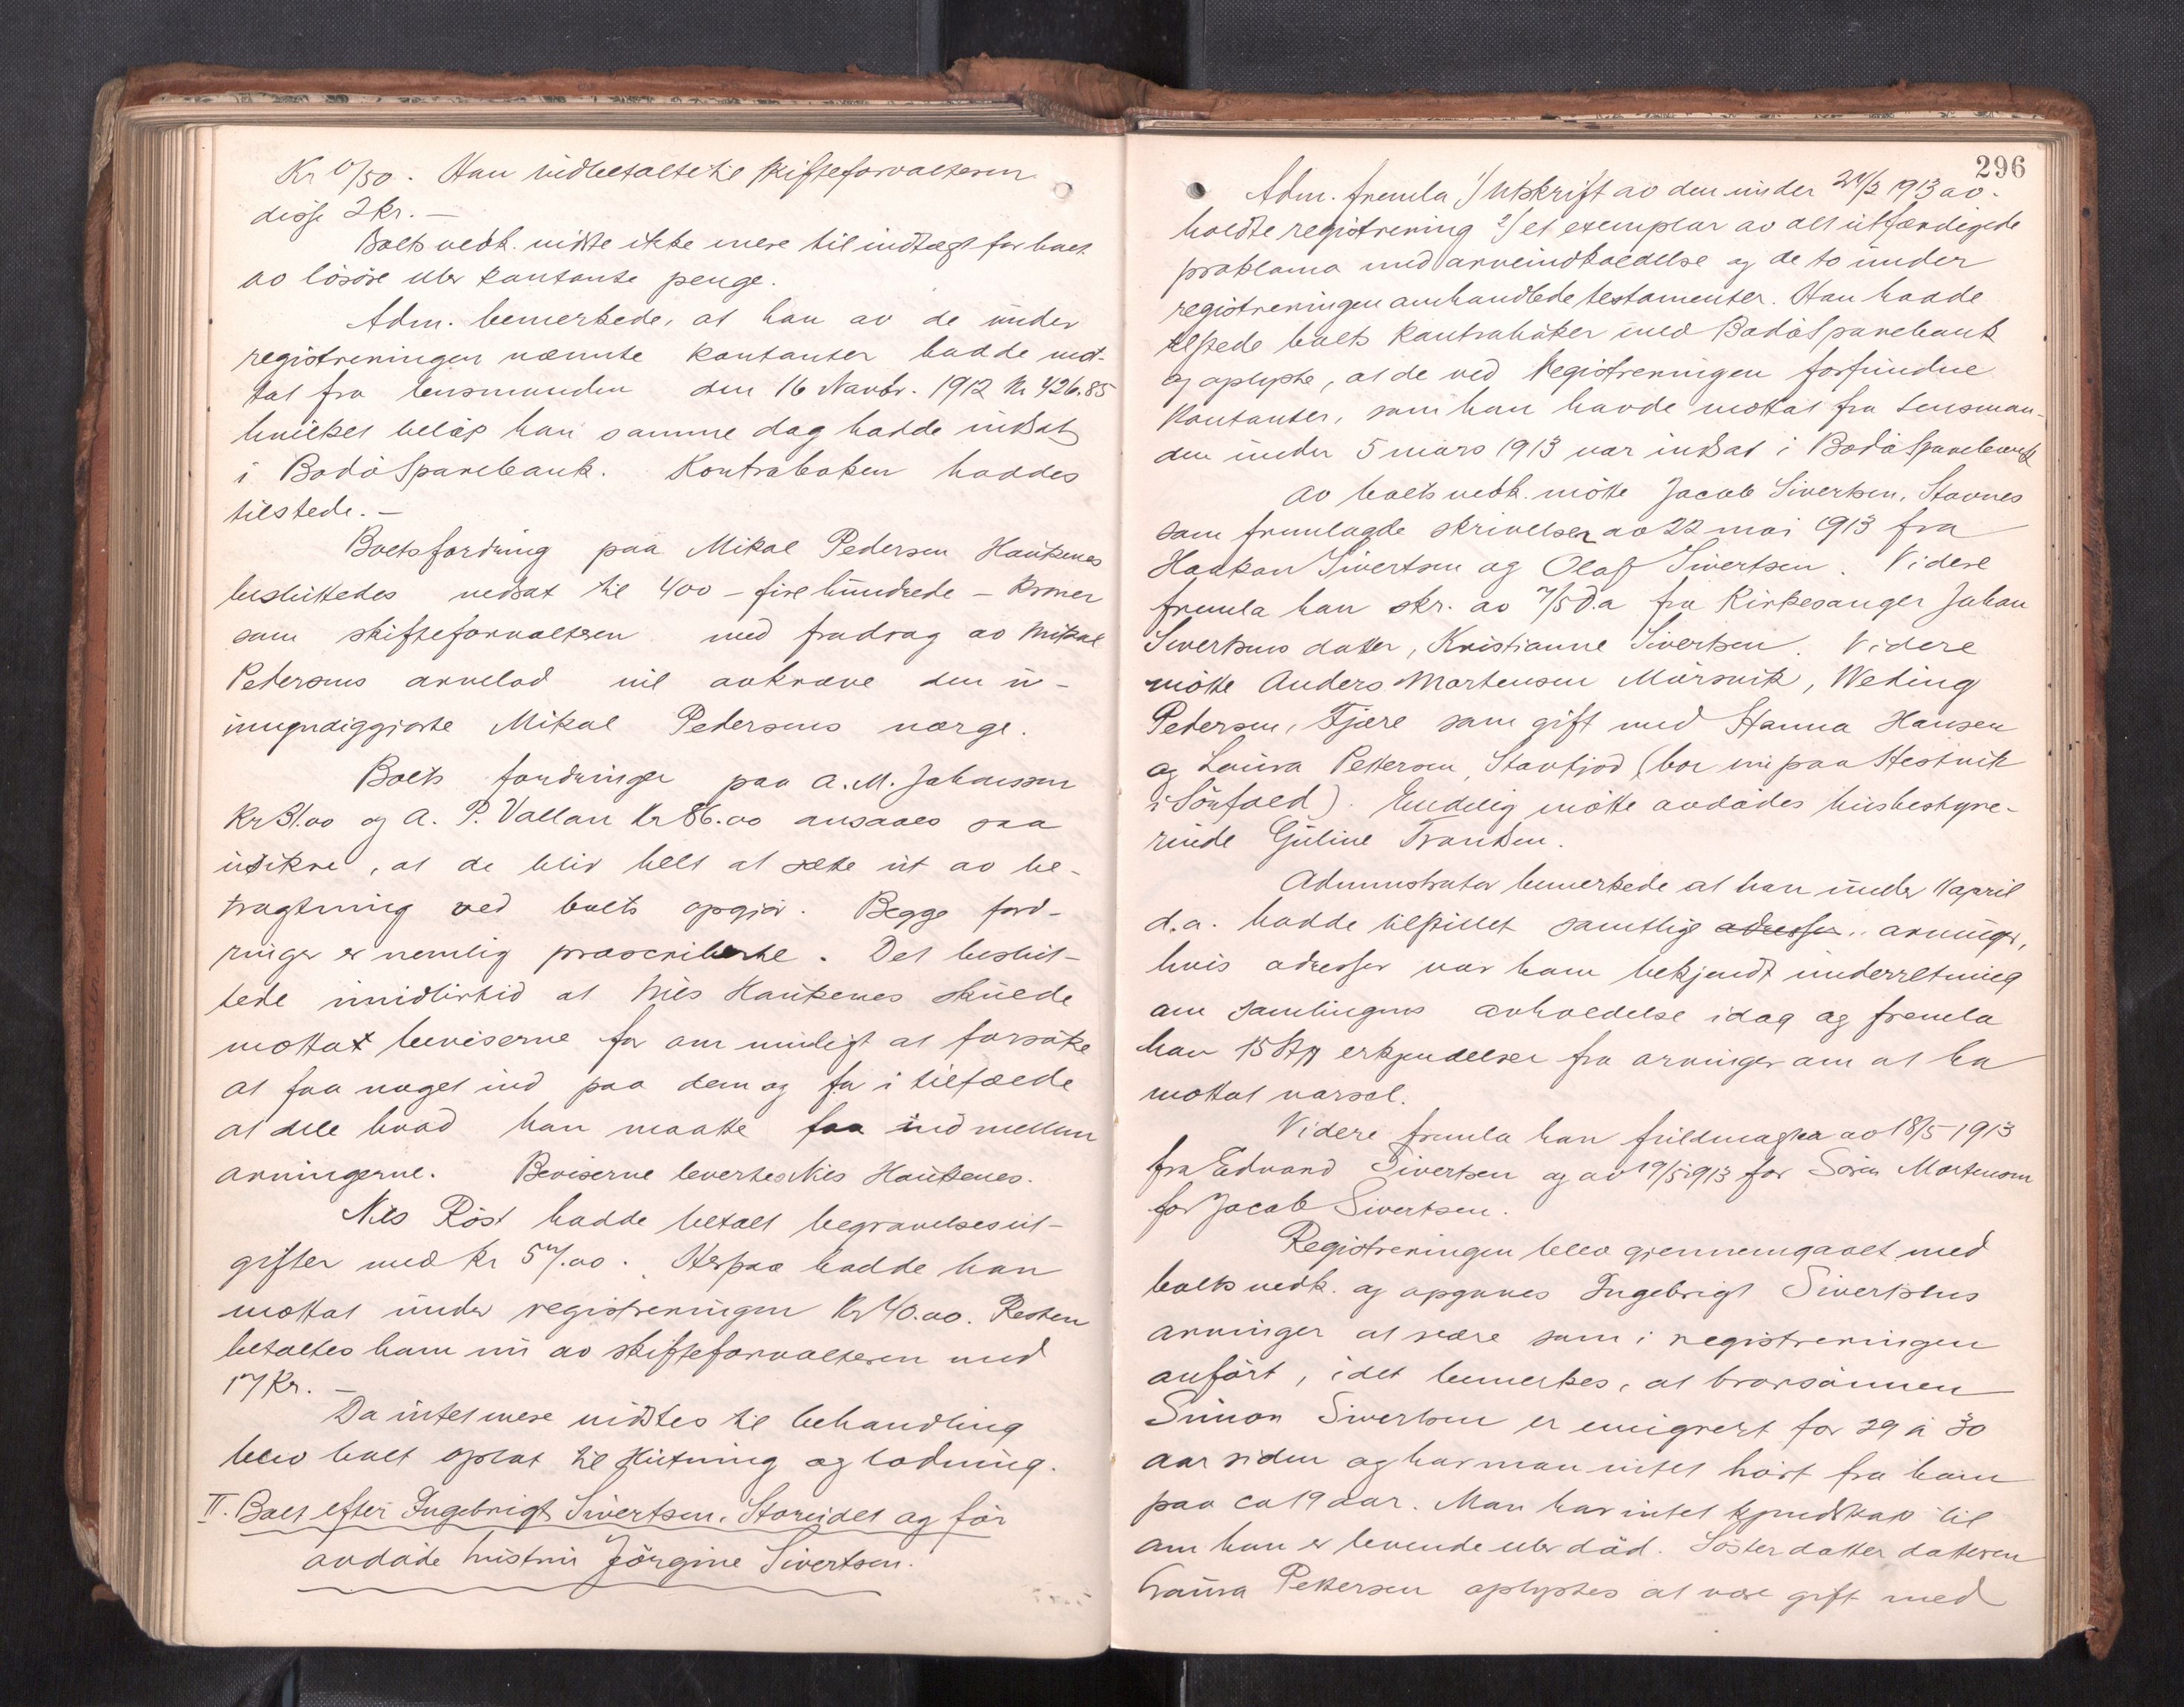 Kr 0/50. Han indbetalte til skifteforvalteren
disse 2 kr. —
Boets vedk. visste ikke mere til indtægt for boet
av lösöre eller kontante penge.
Adm. bemerkede, at han av de under
registreringen nævnte kontanter hadde mot-
tat fra lensmanden den 16 Novbr. 1912 Kr 426.85
hvilket belöp han samme dag hadde indsat
i Bodö Sparebank. Kontraboken haddes
tilstede. —
Boets fordring paa Mikal Pedersen Haukenes
besluttedes nedsat til 400 – fire hundrede – kroner
som skifteforvalteren med fradrag av Mikal
Pedersens arvelod vil avkræve den u-
umyndiggjorte Mikal Pedersens værge.
Boets fordringer paa A. M. Johanssen
Kr 31.00 og A. P. Vallan Kr 86.00 ansaaes saa
usikre, at de blir helt at sætte ut av be-
tragtning ved boets opgjör. Begge ford-
ringer er nemlig præscriberte. Det beslut-
tede imidlertid at Nils Haukenes skulde
motta beviserne for om muligt at forsöke
at faa noget ind paa dem og fa i tilfælde
at dele hvad han maatte faa ind mellem
arvingerne. Beviserne levertes Nils Haukenes.
Nils Röst hadde betalt begravelsesut-
gifter med kr 57.00. Herpaa hadde han
mottat under registreringen Kr 40.00. Resten
betaltes ham nu av skifteforvalteren med
17 Kr. —
Da intet mere vidstes til behandling
blev boet oplat til slutning og lodning.
II. Boet efter Ingebrigt Sivertsen, Storeidet og för
avdöde hustru Jörgine Sivertsen.
296
Adm. fremla 1) Utskrift av den under 24/2 1913 av-
holdte registrering 2) et exemplar av alt utfærdigede
proklama med arveindkaldelse og de to under
registreringen omhandlede testamenter. Han hadde
tilstede boets kontraböker med Bodö Sparebank
og oplyste, at de ved Registreringen forfundne
Kontanter, som han havde mottat fra Lensman-
den under 5 mars 1913 var indsat i Bodö Sparebank
Av boets vedk. mötte Jacob Sivertsen, Stavnes
som fremlagde skrivelser av 22 mai 1913 fra
Haakon Sivertsen og Olaf Sivertsen. Videre
fremla han skr. av 7/5 d.a fra Kirkesanger Johan
Sivertsens datter, Kristianne Sivertsen. Videre
mötte Anders Mortensen Mörsvik, Weding
Pedersen, Fjære som gift med Hanna Hansen
og Laura Pettersen, Stavfjod (bor nu paa Hestvik
i Sörfold). Endelig mötte avdödes husbestyre-
rinde Guline Frantsen.
Administrator bemerkede at han under 11 april
d.a. hadde tilstillet samtlige adresser.. arvinger,
hvis adresser var ham bekjendt underretning
om samlingens avholdelse idag og fremla
han 15 stk erkjendelser fra arvinger om at ha
mottat varsel.
Videre fremla han fuldmagter av 18/5 1913
fra Edvard Sivertsen og av 19/5 1913 for Sören Mortensen
for Jacob Sivertsen.
Registreringen blev gjennemgaaet med
boets vedk. og opgaves Ingebrigt Sivertsens
arvinger at være som i registreringen
anfört, idet bemerkes, at brorsönnen
Simon Sivertsen er emigrert for 29 à 30
aar siden og har man intet hört fra ham
paa ca 19 aar. Man har intet kjendskap til
om han er levende eller död. Sösterdatter datteren
Laura Pettersen oplystes at være gift med